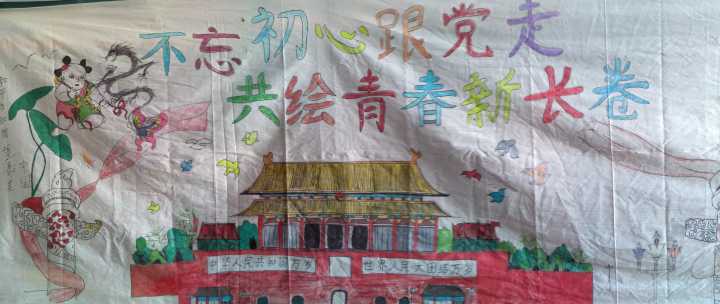 不忘初心跟党走
共绘青春新长卷
中华人民共和国万岁
世界人民大团结万岁